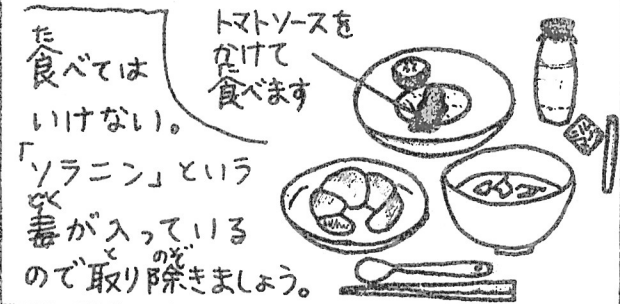 食べては
いけない。
「ソラニン」という
毒が入っている
ので取り除きましょう。
トマトソースを
かけて
食べます